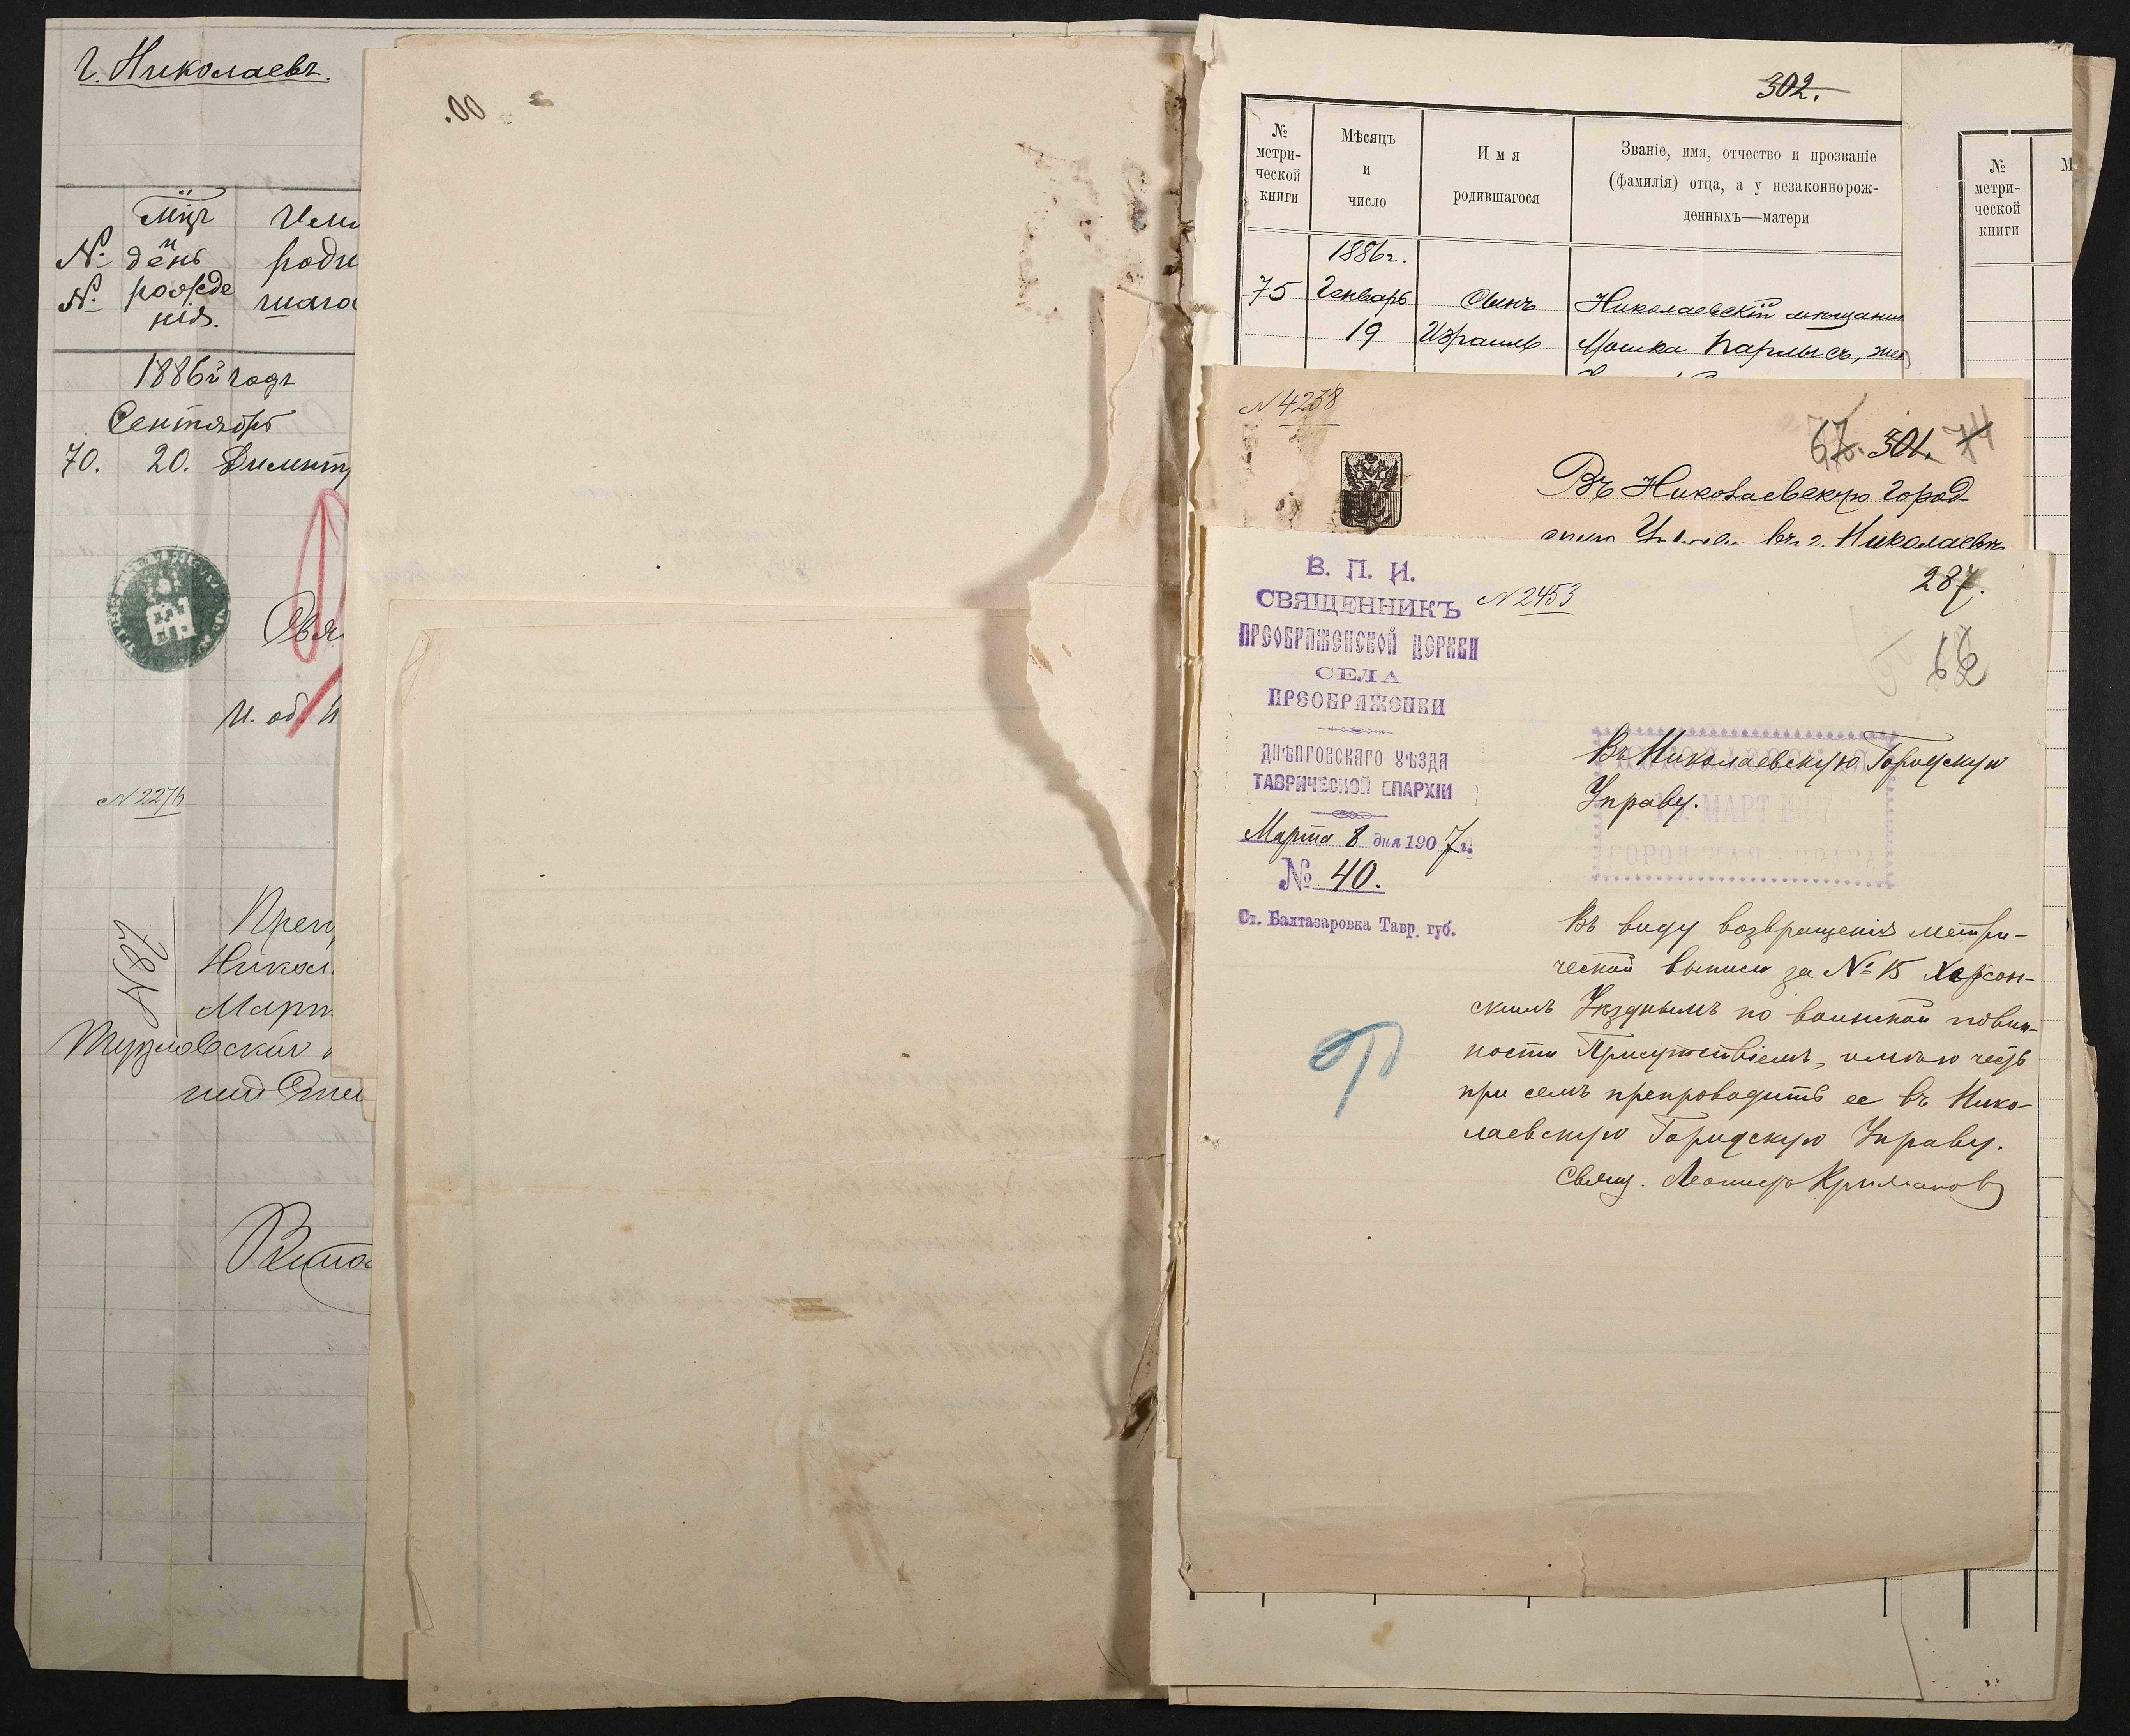 г. Николаевъ.
№
№
мцъ
и
день
рожде
нія.
Имя
роди
шаго
1886й годъ
Сентябрь
70. 20. Димитр
Свя
И. об. и
N 2276
Преп
Никол
Март
под Опе
302.
№ метри-ческой книги
Мѣсяцъ и число
Имя родившагося
Званіе, имя, отчество и прозваніе
(фамилія) отца, а у незаконнорож-
денныхъ—матери
1886 г.
75 Генварь Сынъ Николаевскій мѣщанин
19 Израиль Мошка Карлысъ, жен
№
метри-
ческой
книги
М
N 4238
67. 301. 74
Въ Николаевскую Город
въ г. Николаевъ
В. П. И.
СВЯЩЕННИКЪ
ПРЕОБРАЖЕНСКОЙ ЦЕРКВИ
СЕЛА
ПРЕОБРАЖЕНКИ
ДНѢПРОВСКАГО УѢЗДА
ТАВРИЧЕСКОЙ ЕПАРХІИ
Марта 8 дня 1907 г.
№ 40.
Ст. Балтазаровка Тавр. губ.
N 2453
287.
66
НИКОЛАЕВСКАЯ
МАРТ 1907
ГОРОДСКАЯ УПРАВА
Въ Николаевскую Городскую
Управу.
Въ виду возвращенія метри-
ческой выписи за № 15 Херсон-
скимъ Уѣзднымъ по воинской повин-
ности Присутствіемъ, имѣю честь
при семъ препроводить ее въ Нико-
лаевскую Городскую Управу.
Свящ. Леонидъ Крыжановъ